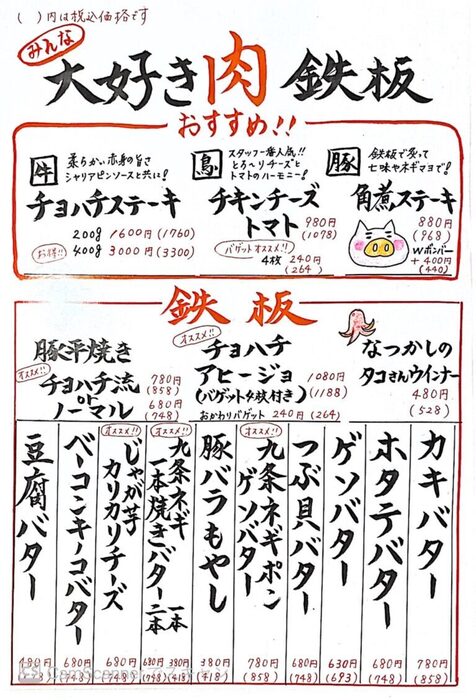 ( )内は税込価格です
みんな
大好き肉鉄板
おすすめ!!
牛
柔らかい赤身の旨さ
シャリアピンソースと共に!
チョハチステーキ
200g 1600円 (1760)
お得!! 400g 3000円 (3300)
鳥
スタッフ一番人気!!
とろ〜りチーズと
トマトのハーモニー!
チキンチーズ
トマト
980円
(1078)
バゲットオススメ!!
4枚 240円
(264)
豚
鉄板で炙って
七味やネギマヨで!
角煮ステーキ
880円
(968)
Wボンバー
+400円
(440)
鉄板
豚平焼き
オススメ!!
チョハチ流
780円
(858)
or
ノーマル
680円
(748)
オススメ!!
チョハチ
アヒージョ
(バゲット4枚付き)
1080円
(1188)
おかわりバゲット 240円 (264)
なつかしの
タコさんウインナー
480円
(528)
カキバター
780円
(858)
ホタテバター
680円
(748)
ゲソバター
630円
(693)
つぶ貝バター
680円
(748)
オススメ!!
九条ネギポン
ゲソバター
780円
(858)
豚バラもやし
380円
(418)
オススメ!!
九条ネギ
一本焼きバター
一本
380円
(418)
二本
680円
(748)
オススメ!!
じゃが芋
カリカリチーズ
680円
(748)
ベーコンキノコバター
680円
(748)
豆腐バター
CamScanner